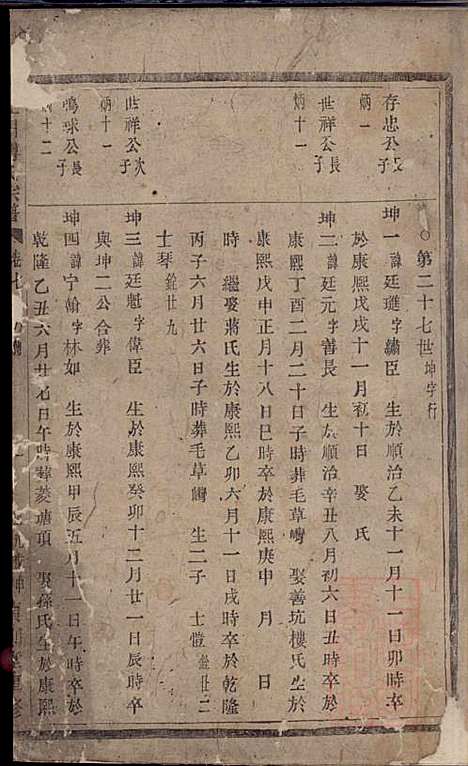 ○第二十七世 坤字行
存忠公長子 炳一
坤一 諱廷璡 字繡臣 生於順治乙未十一月十一日卯時卒
於康熙戊戌十一月初十日 娶 氏
世祥公長子 炳十一
坤二 諱廷元 字善長 生於順治辛丑八月初六日丑時卒於
康熙丁酉二月二十日子時葬毛草㠗 娶善坑樓氏生於
康熙戊申正月十八日巳時卒於康熙庚申 月 日
時 繼娶蔣氏生於康熙乙卯六月十一日戌時卒於乾隆
丙子六月廿六日子時葬毛草㠗 生二子 士愷 銓廿二
士琴 銓廿九
世祥公次子 炳十一
坤三 諱廷魁 字偉臣 生於康熙癸卯十二月廿一日辰時卒
與坤二公合葬
鳴球公長子 炳十二
坤四 諱宁翰 字林如 生於康熙甲辰五月十一日午時卒於
乾隆乙丑六月廿七日午時葬菱塘項 娶孫氏生於康熙